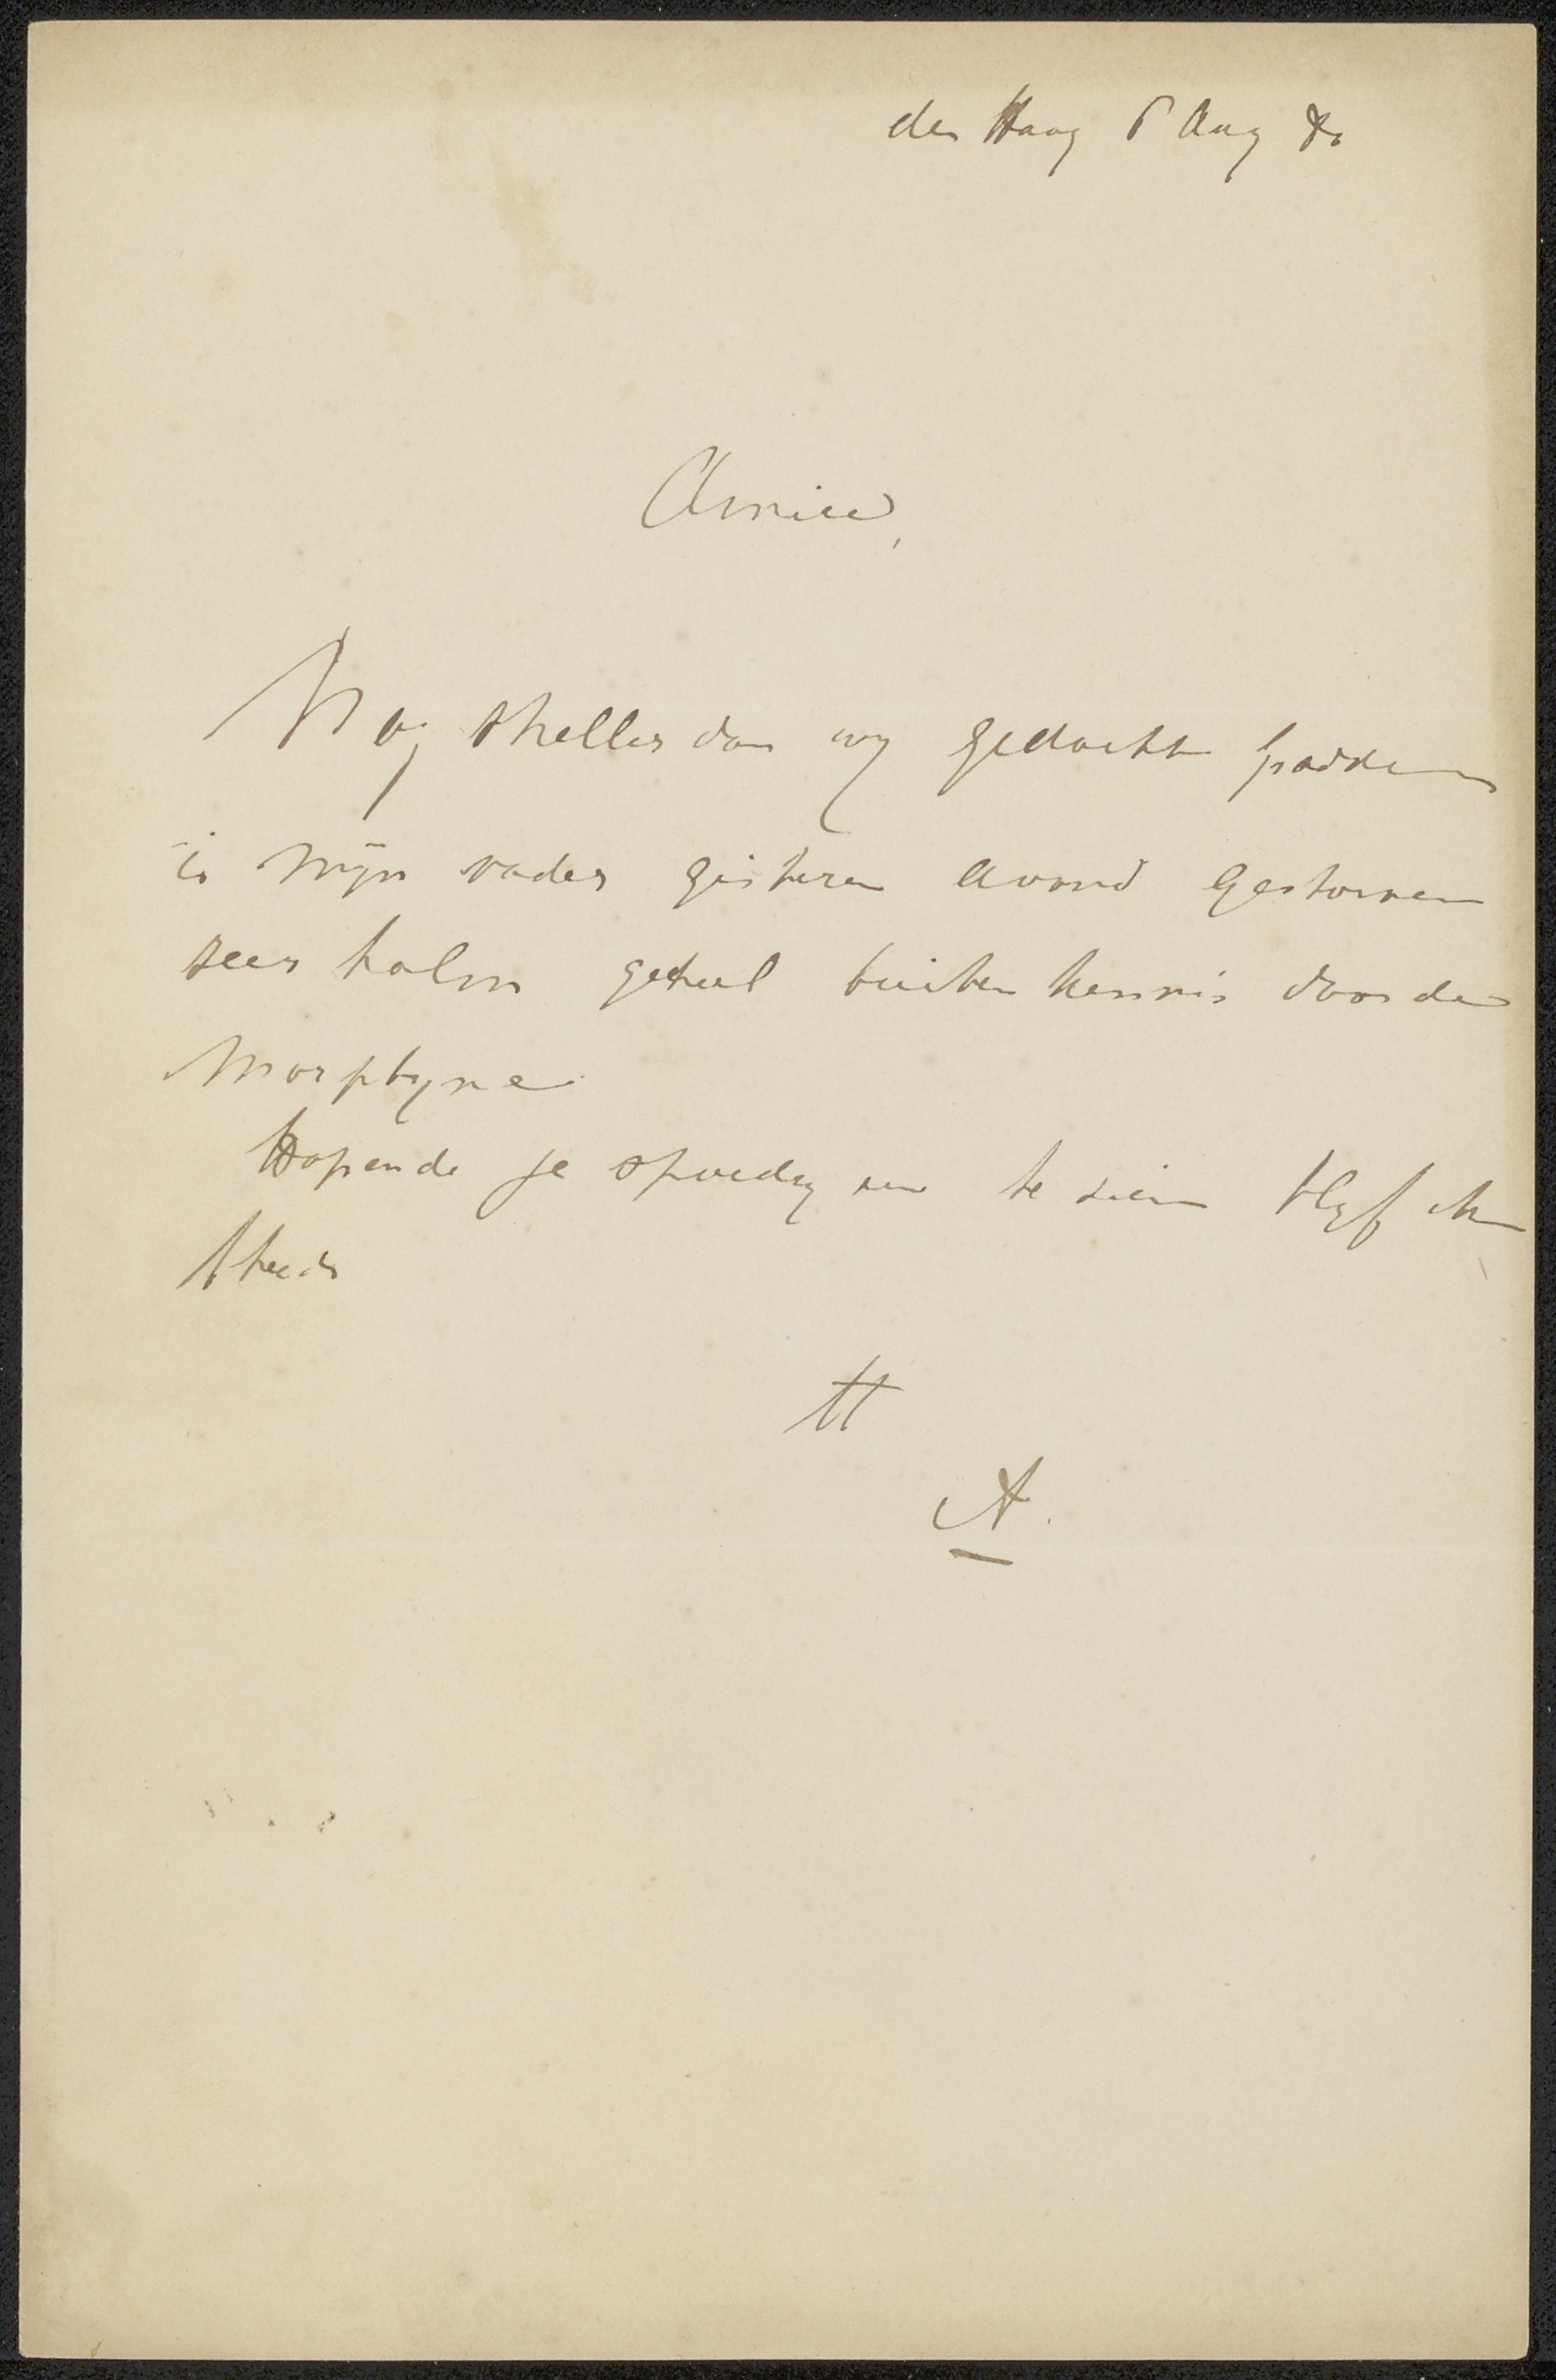 den Haag 6 Aug 80
Amice,
Nog sneller dan wy gedacht hadden
is mijn vader gisteren avond gestorven
zeer kalm geheel buiten kennis door de
Morphyne
Hopende je spoedig te zien blyf ik
steeds
tt
A.